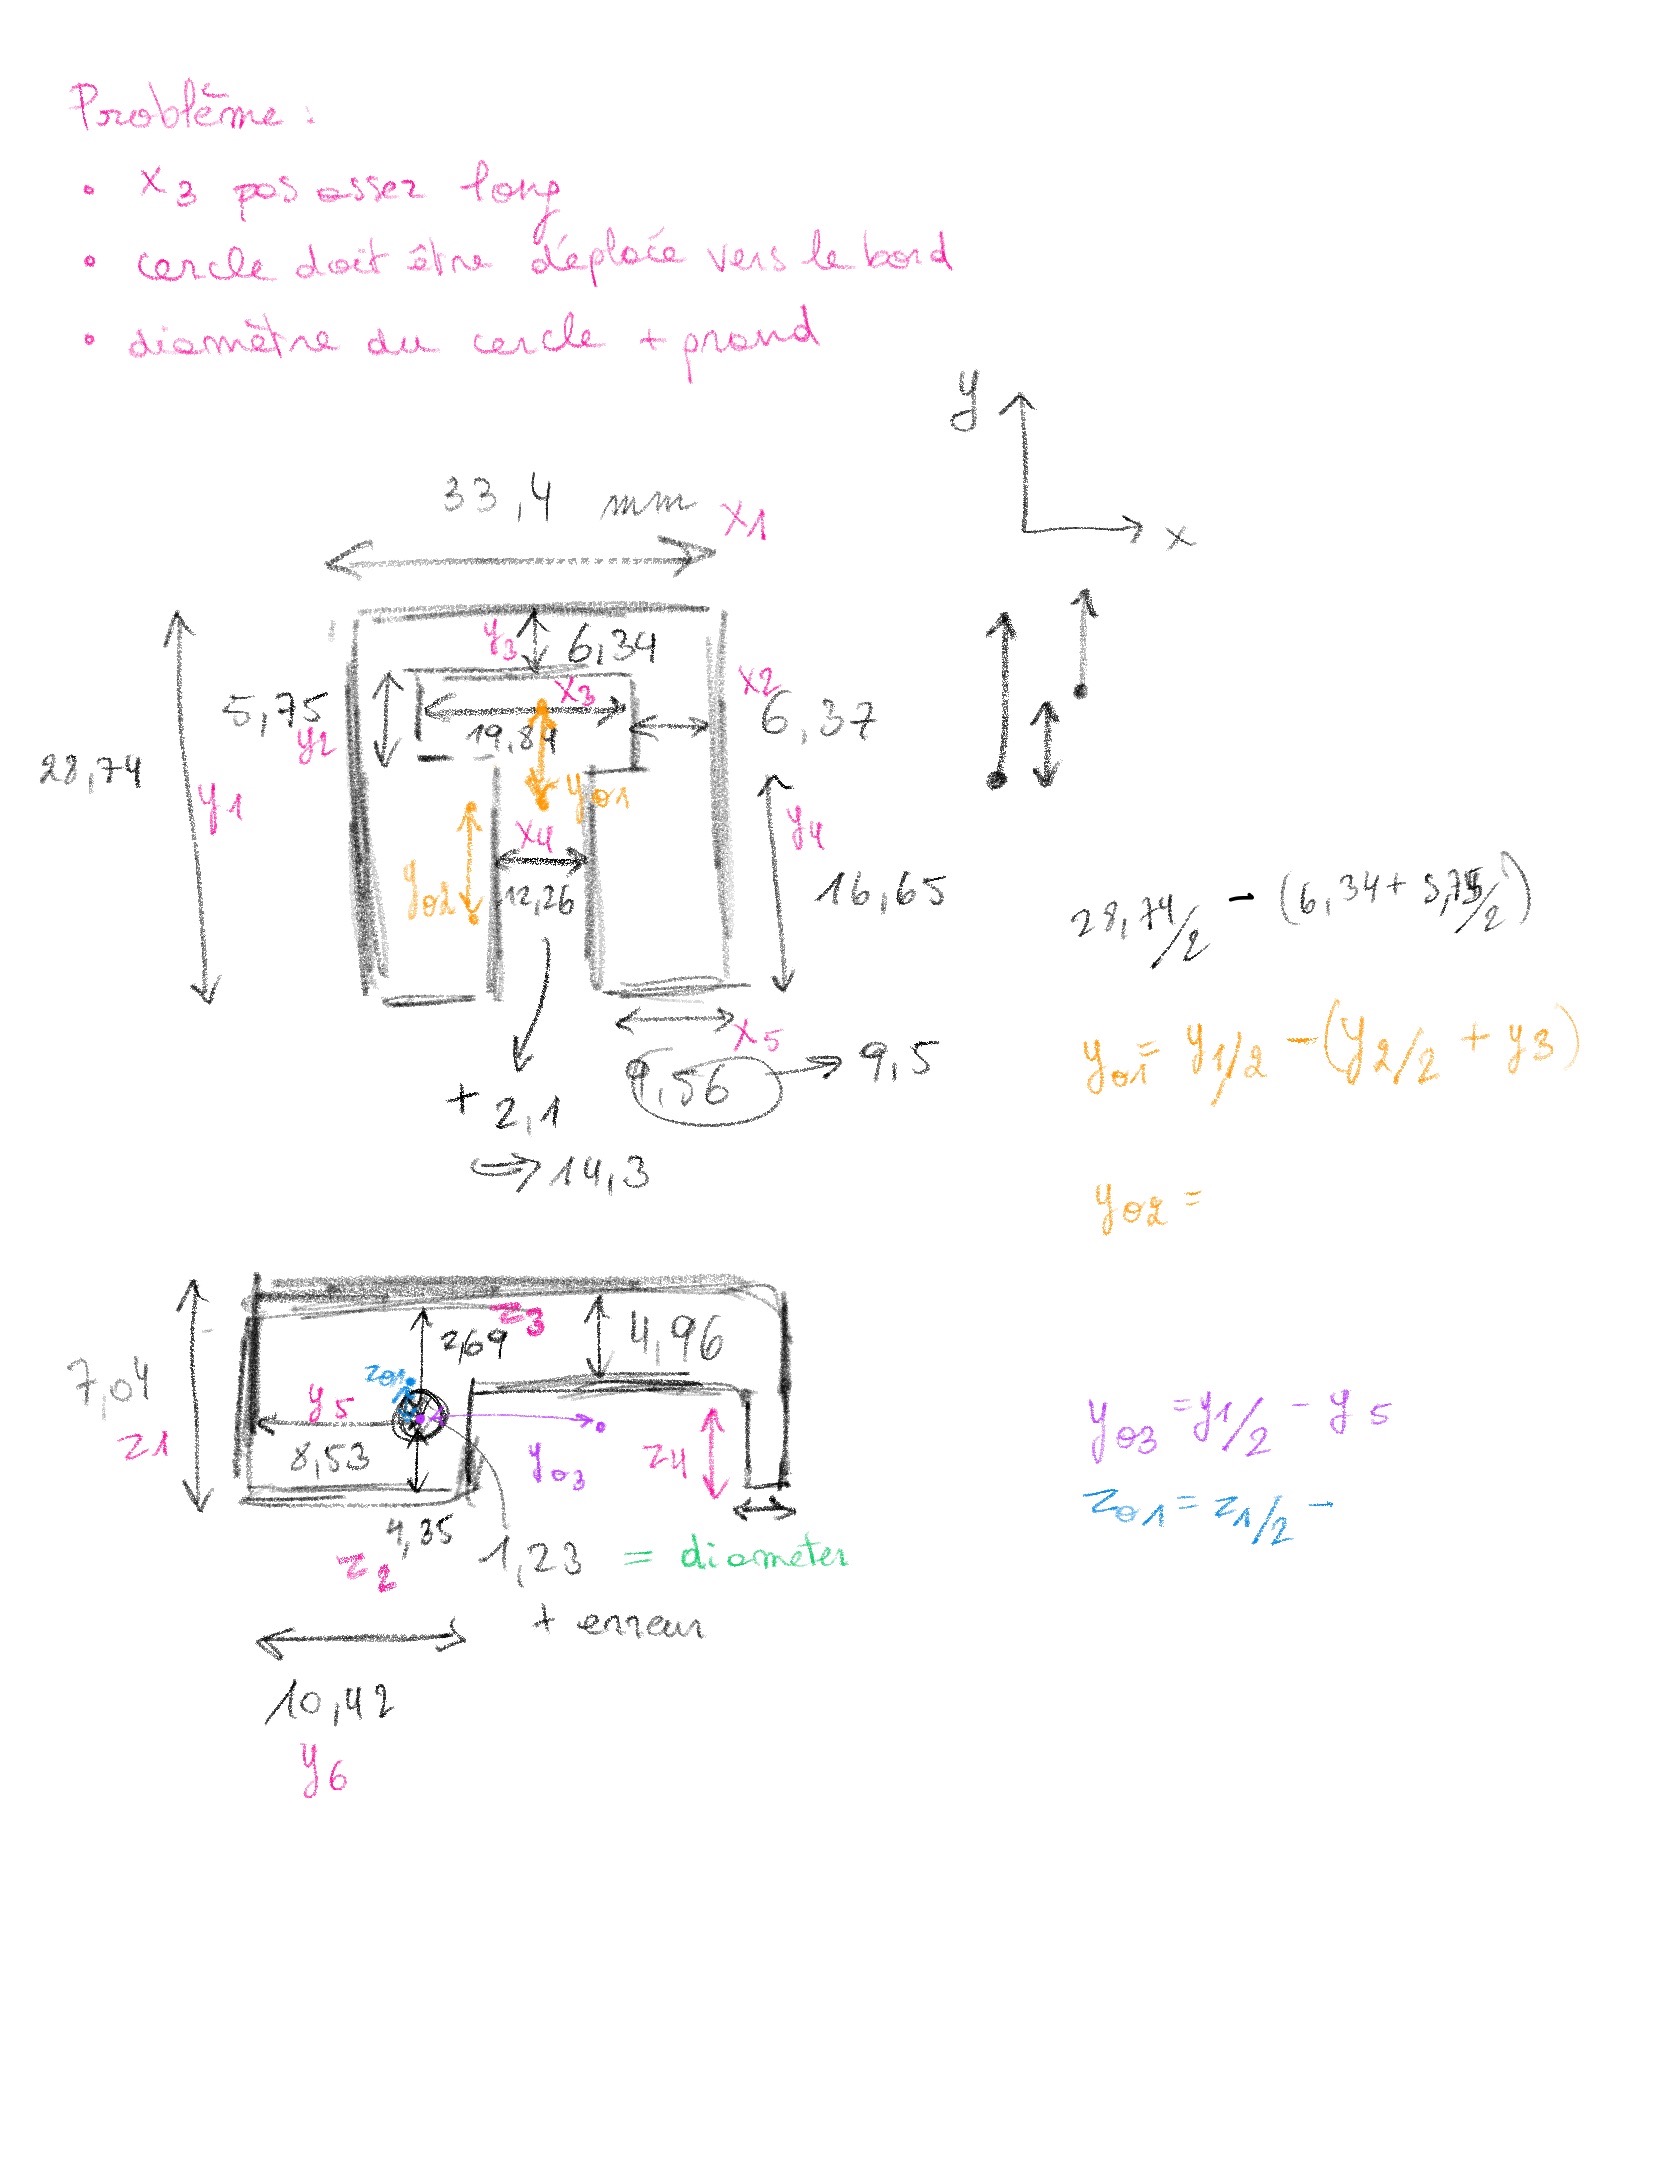 Problème :
• x3 pas assez long
• cercle doit être déplacée vers le bord
• diamètre du cercle + grand
y
x
33,4 mm
x1
y3
6,34
x2
5,75
x3
6,37
y2
19,84
28,74
y1
yo1
y4
x4
yo2
12,26
16,65
28,74/2 - (6,34 + 5,75/2)
x5
9,56 → 9,5
yo1 = y1/2 - (y2/2 + y3)
+ 2,1
→ 14,3
yo2 =
z3
2,69
4,96
7,04
zo1
z1
y5
8,53
yo3
z4
yo3 = y1/2 - y5
zo1 = z1/2 -
4,35
z2
1,23 = diameter
+ erreur
10,42
y6